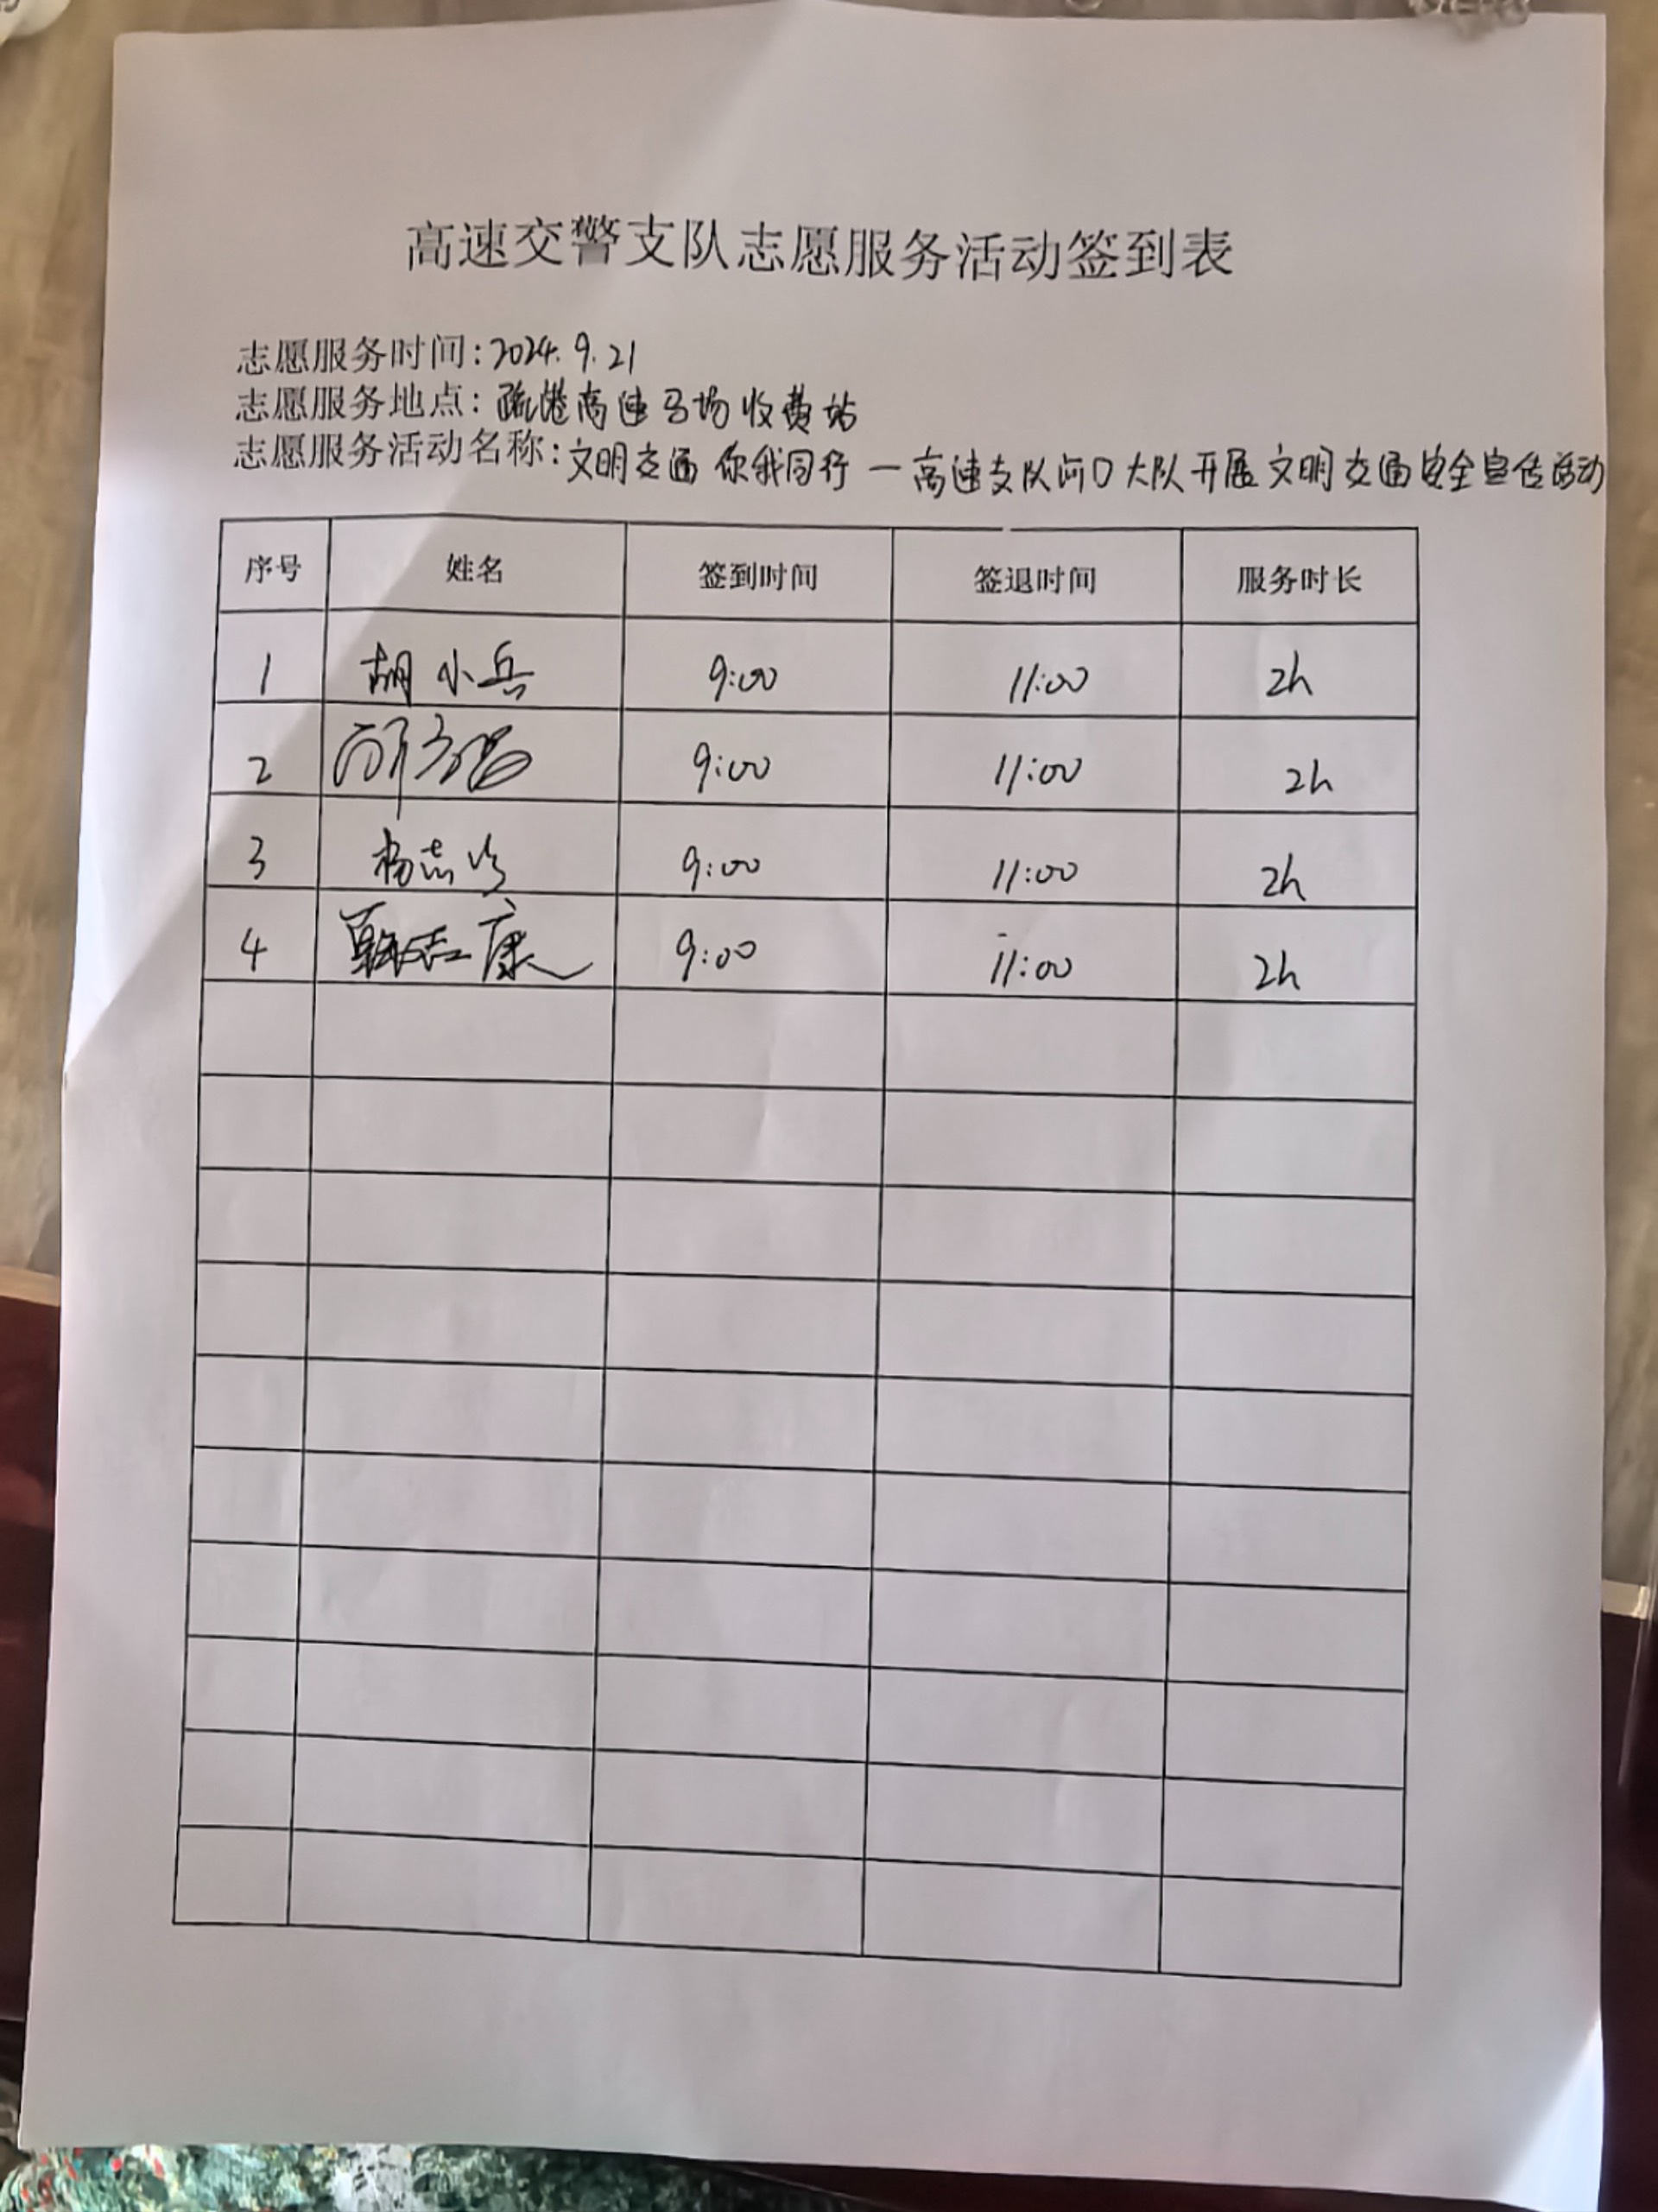 高速交警支队志愿服务活动签到表
志愿服务时间:2024.9.21
志愿服务地点:疏港高速马场收费站
志愿服务活动名称:文明交通 你我同行 一高速支队河口大队开展文明交通安全宣传活动
序号 姓名 签到时间 签退时间 服务时长
1 胡小兵 9:00 11:00 2h
2 9:00 11:00 2h
3 杨志 9:00 11:00 2h
4 康 9:00 11:00 2h